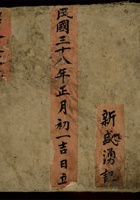 民國三十八年正月初一吉日立
新盛湧記